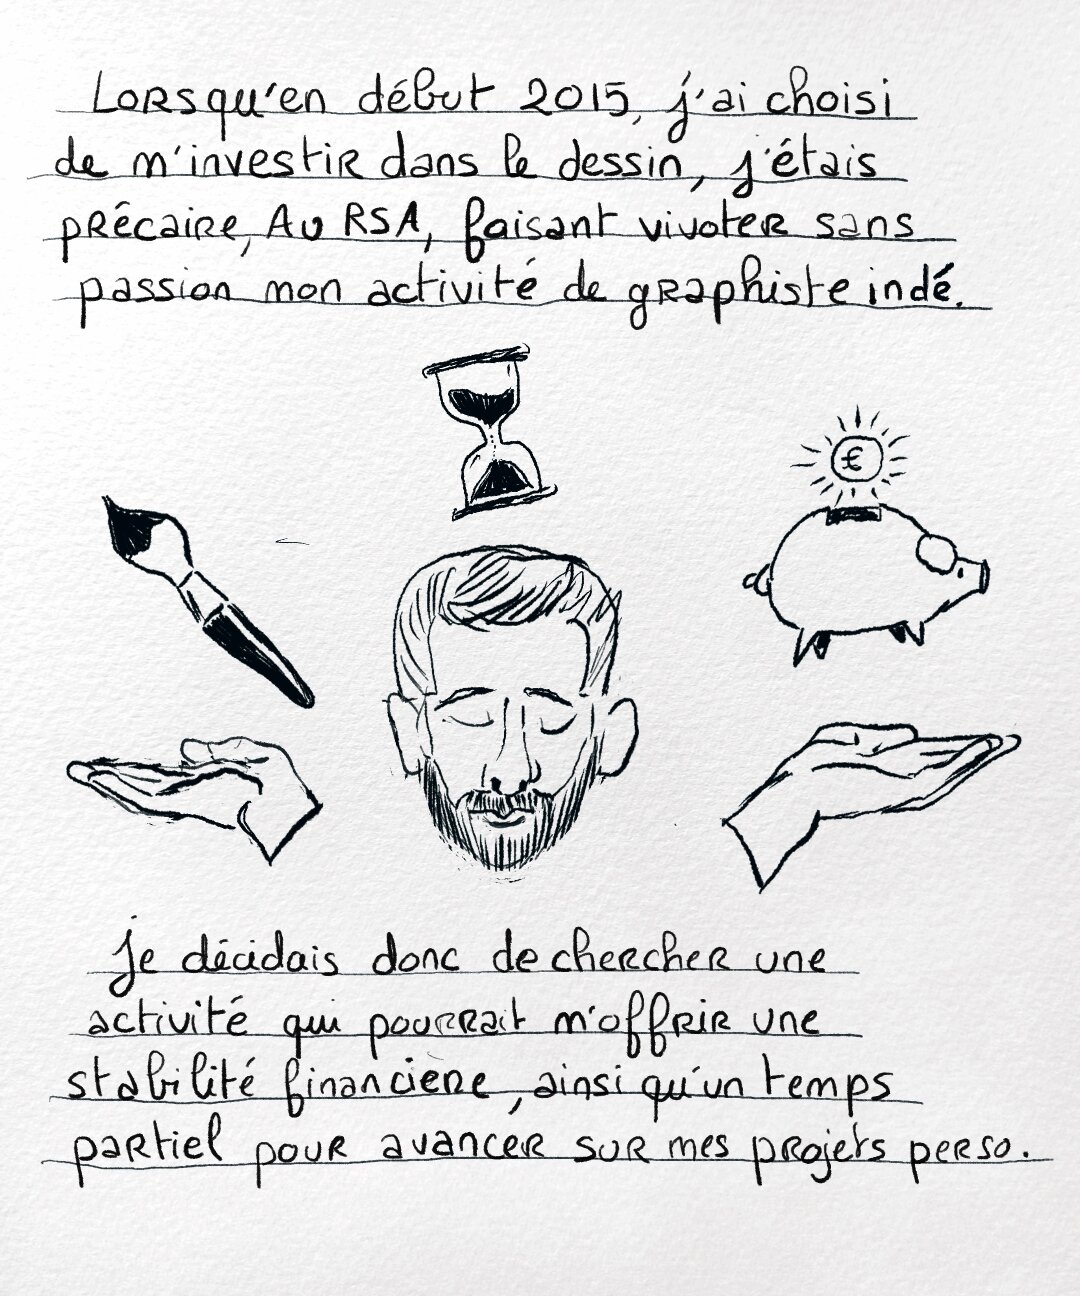 Lorsqu'en début 2015, j'ai choisi
de m'investir dans le dessin, j'étais
précaire, Au RSA, faisant vivoter sans
passion mon activité de graphiste indé.
€
je décidais donc de chercher une
activité qui pourrait m'offrir une
stabilité financière, ainsi qu'un temps
partiel pour avancer sur mes projets perso.